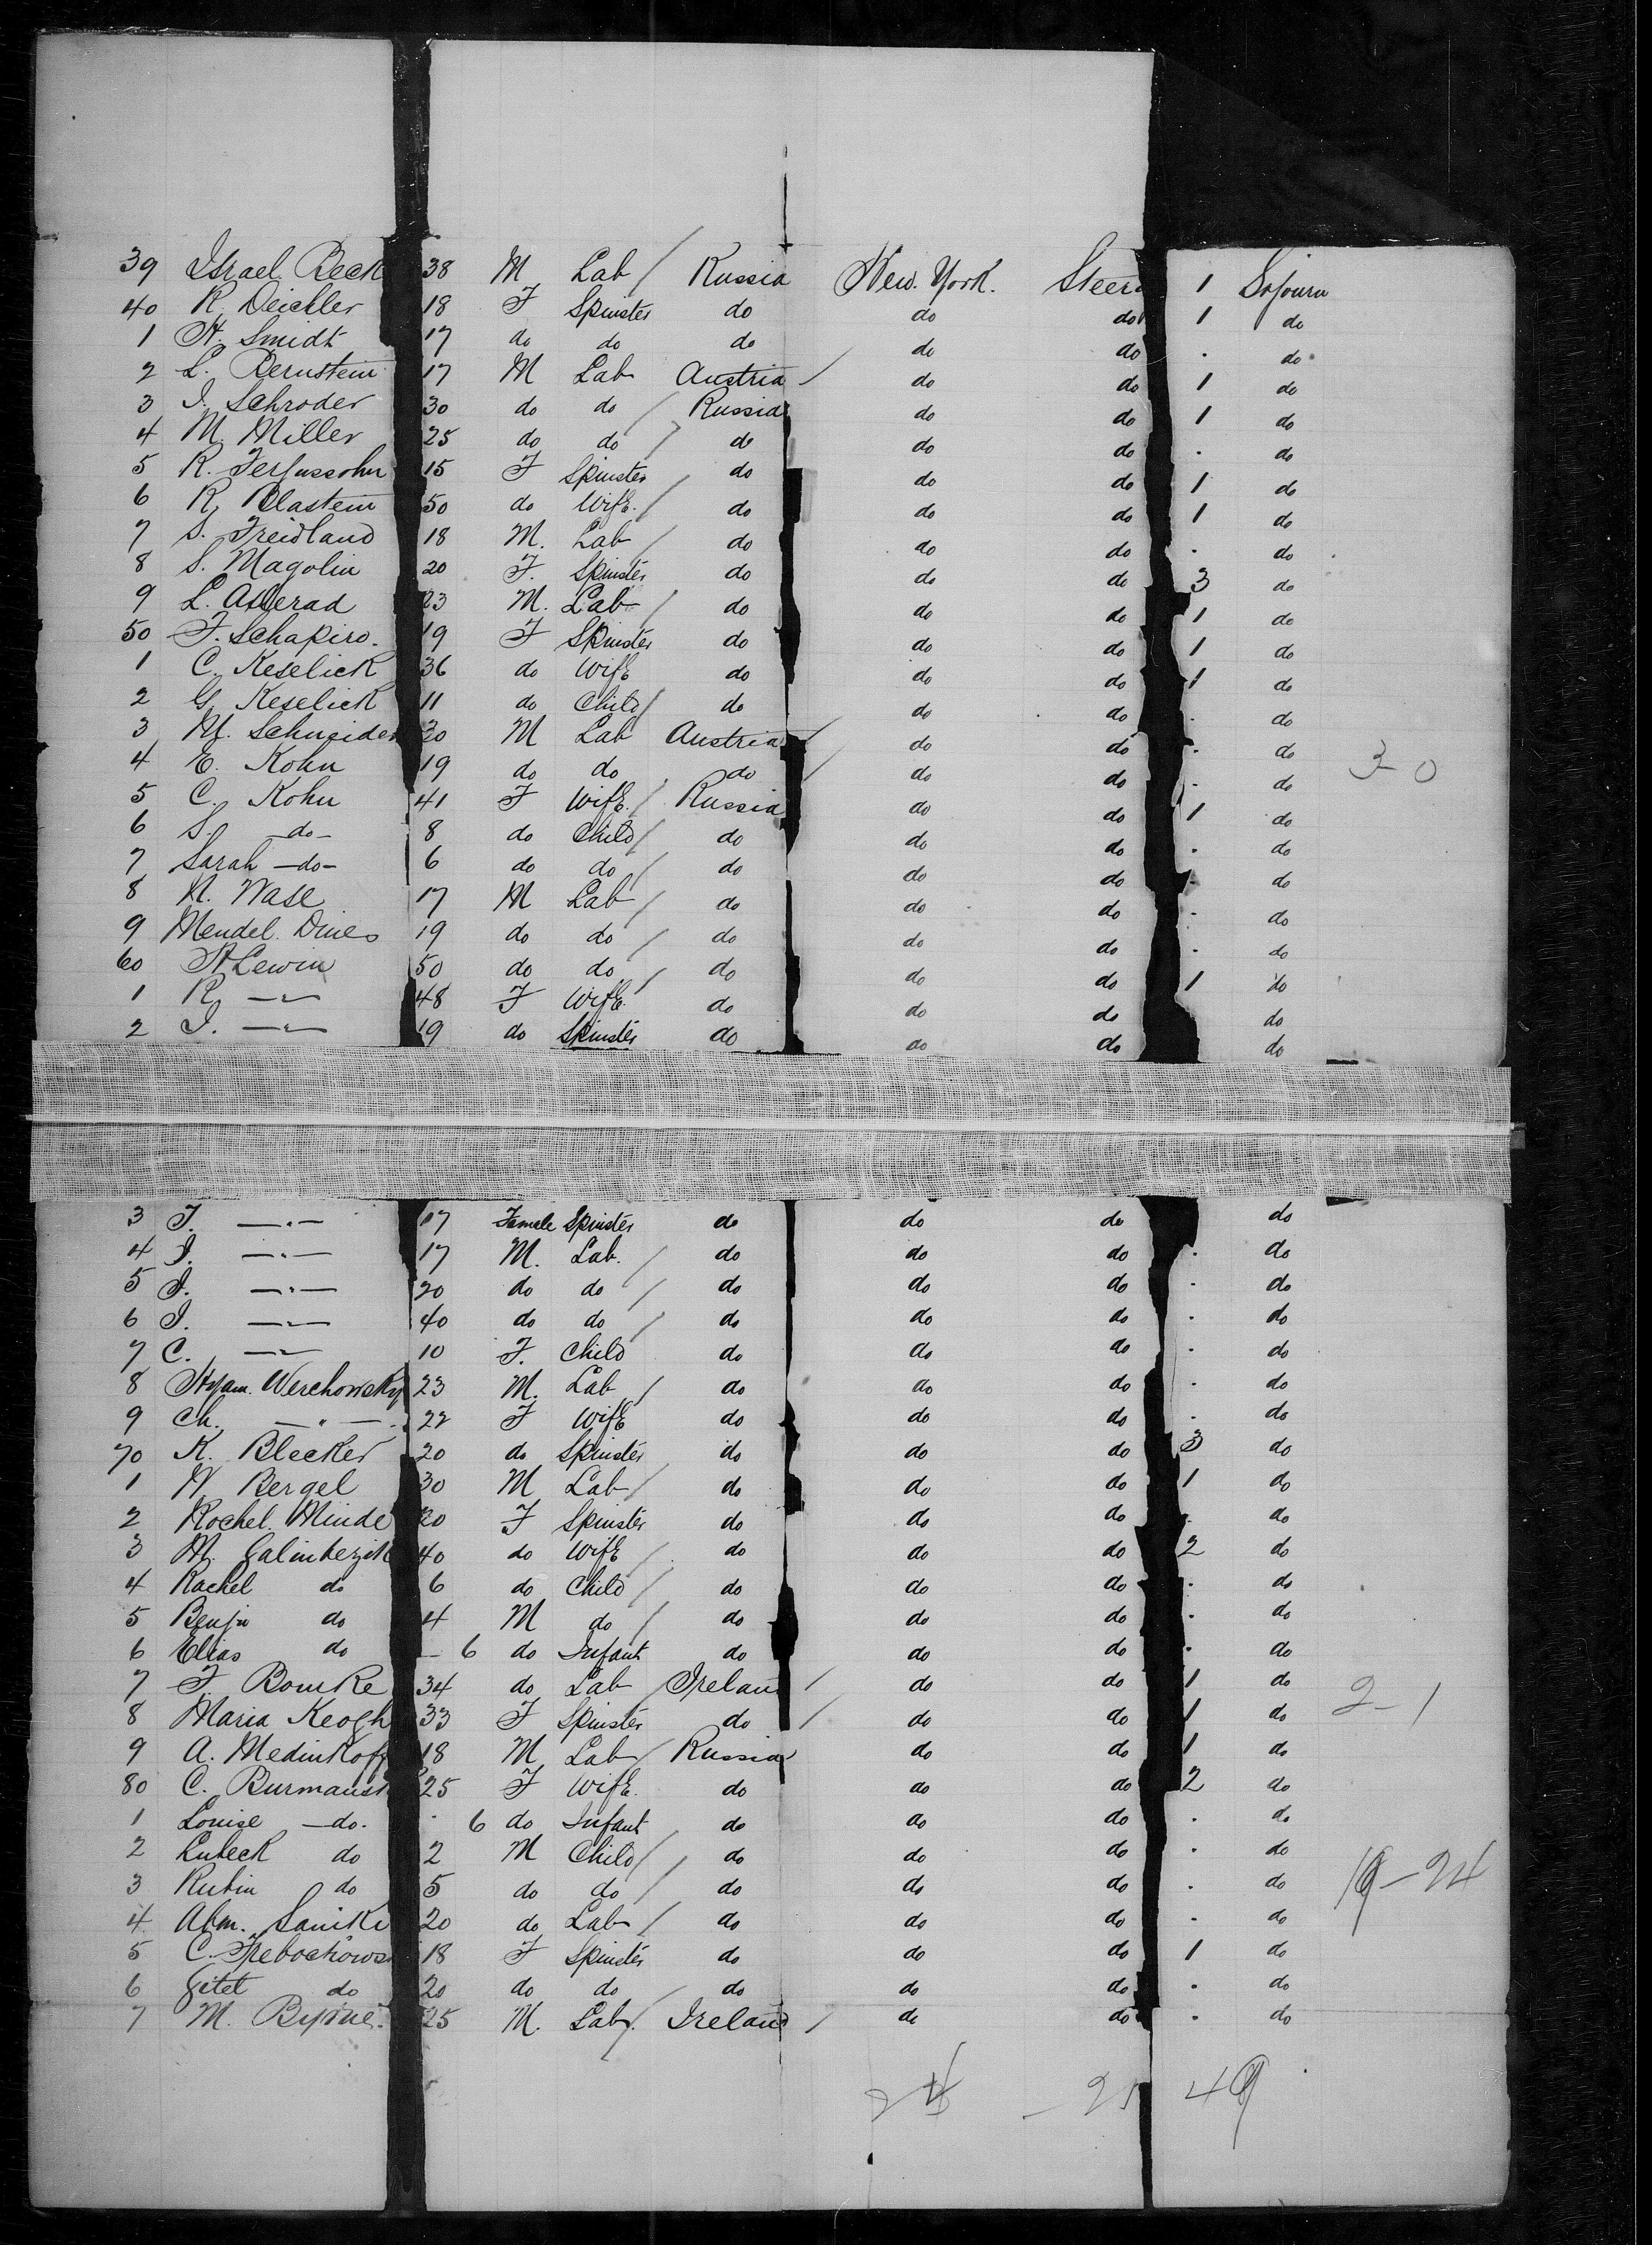 39 Israel Beck 38 M Lab / Russia New. York. Steera 1 Sojourn
40 R. Deichler 18 F Spinster do do do 1 do
1 H. Smidt 17 do do do do do . do
2 L. Bernstein 17 M Lab Austria / do do 1 do
3 I. Schroder 30 do do / Russia do do 1 do
4 M. Miller 25 do do / do do do . do
5 R. 15 F Spinster do do do 1 do
6 R. Blastein 50 do Wife. / do do do 1 do
7 S. Freidland 18 M. Lab / do do do . do
8 S. Magolin 20 F. Spinster do do do 3 do
9 L. 23 M. Lab / do do do 1 do
50 F. Schapiro. 19 F Spinster do do do 1 do
1 C. Keselick 36 do Wife do do do 1 do
2 G. Keselick 11 do Child / do do do . do
3 M. Schneider 30 M Lab Austria / do do . do
4 E. Kohn 19 do do do / do do . do 3-0
5 C. Kohn 41 F Wife. / Russia do do 1 do
6 S. -do- 8 do Child / do do do . do
7 Sarah -do- 6 do do / do do do . do
8 N. Wase 17 M Lab / do do do . do
9 Mendel. Dines 19 do do / do do do . do
60 H Lewin 50 do do / do do do 1 do
1 R. —"— 48 F Wife. do do do do
2 I. —"— 19 do Spinster do do do do
3 F. —"— 17 Female Spinster do do do do
4 I. —"— 17 M. Lab. / do do do . do
5 I. —"— 20 do do / do do do . do
6 I. —"— 40 do do / do do do . do
7 C. —"— 10 F. Child do do do . do
8 Hyam. Werchowsky 23 M. Lab / do do do . do
9 Ch. —"— 22 F Wife do do do . do
70 K. Blecker 20 do Spinster do do do 3 do
1 Bergel 30 M Lab / do do do 1 do
2 Rochel. Minde 20 F Spinster do do do . do
3 M. 40 do Wife / do do do 2 do
4 Rachel do 6 do Child / do do do . do
5 Benjn do 4 M do / do do do . do
6 Elias do - 6 do Infant do do do . do
7 F. Bourke 34 do Lab / Ireland / do do 1 do
8 Maria Keogh 33 F Spinster do / do do 1 do 2-1
9 A. Medinkoff 18 M Lab / Russia do do 1 do
80 C. Burmansk 25 F Wife. do do do 2 do
1 Louise -do. . 6 do Infant do do do . do
2 Lubeck do 2 M Child / do do do . do
3 Rubin do 5 do do / do do do . do 19-24
4 Abm. 20 do Lab / do do do . do
5 C. 18 F Spinster do do do 1 do
6 Gitel do 20 do do do do do . do
7 M. Byrne. 25 M. Lab / Ireland / do do . do
24 - 25 49